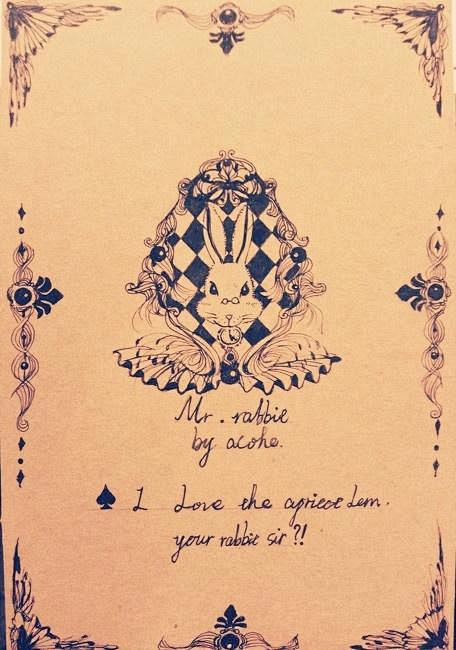 Mr. rabbit
by acohe.
I Love the apricot Jem.
your rabbit sir ?!